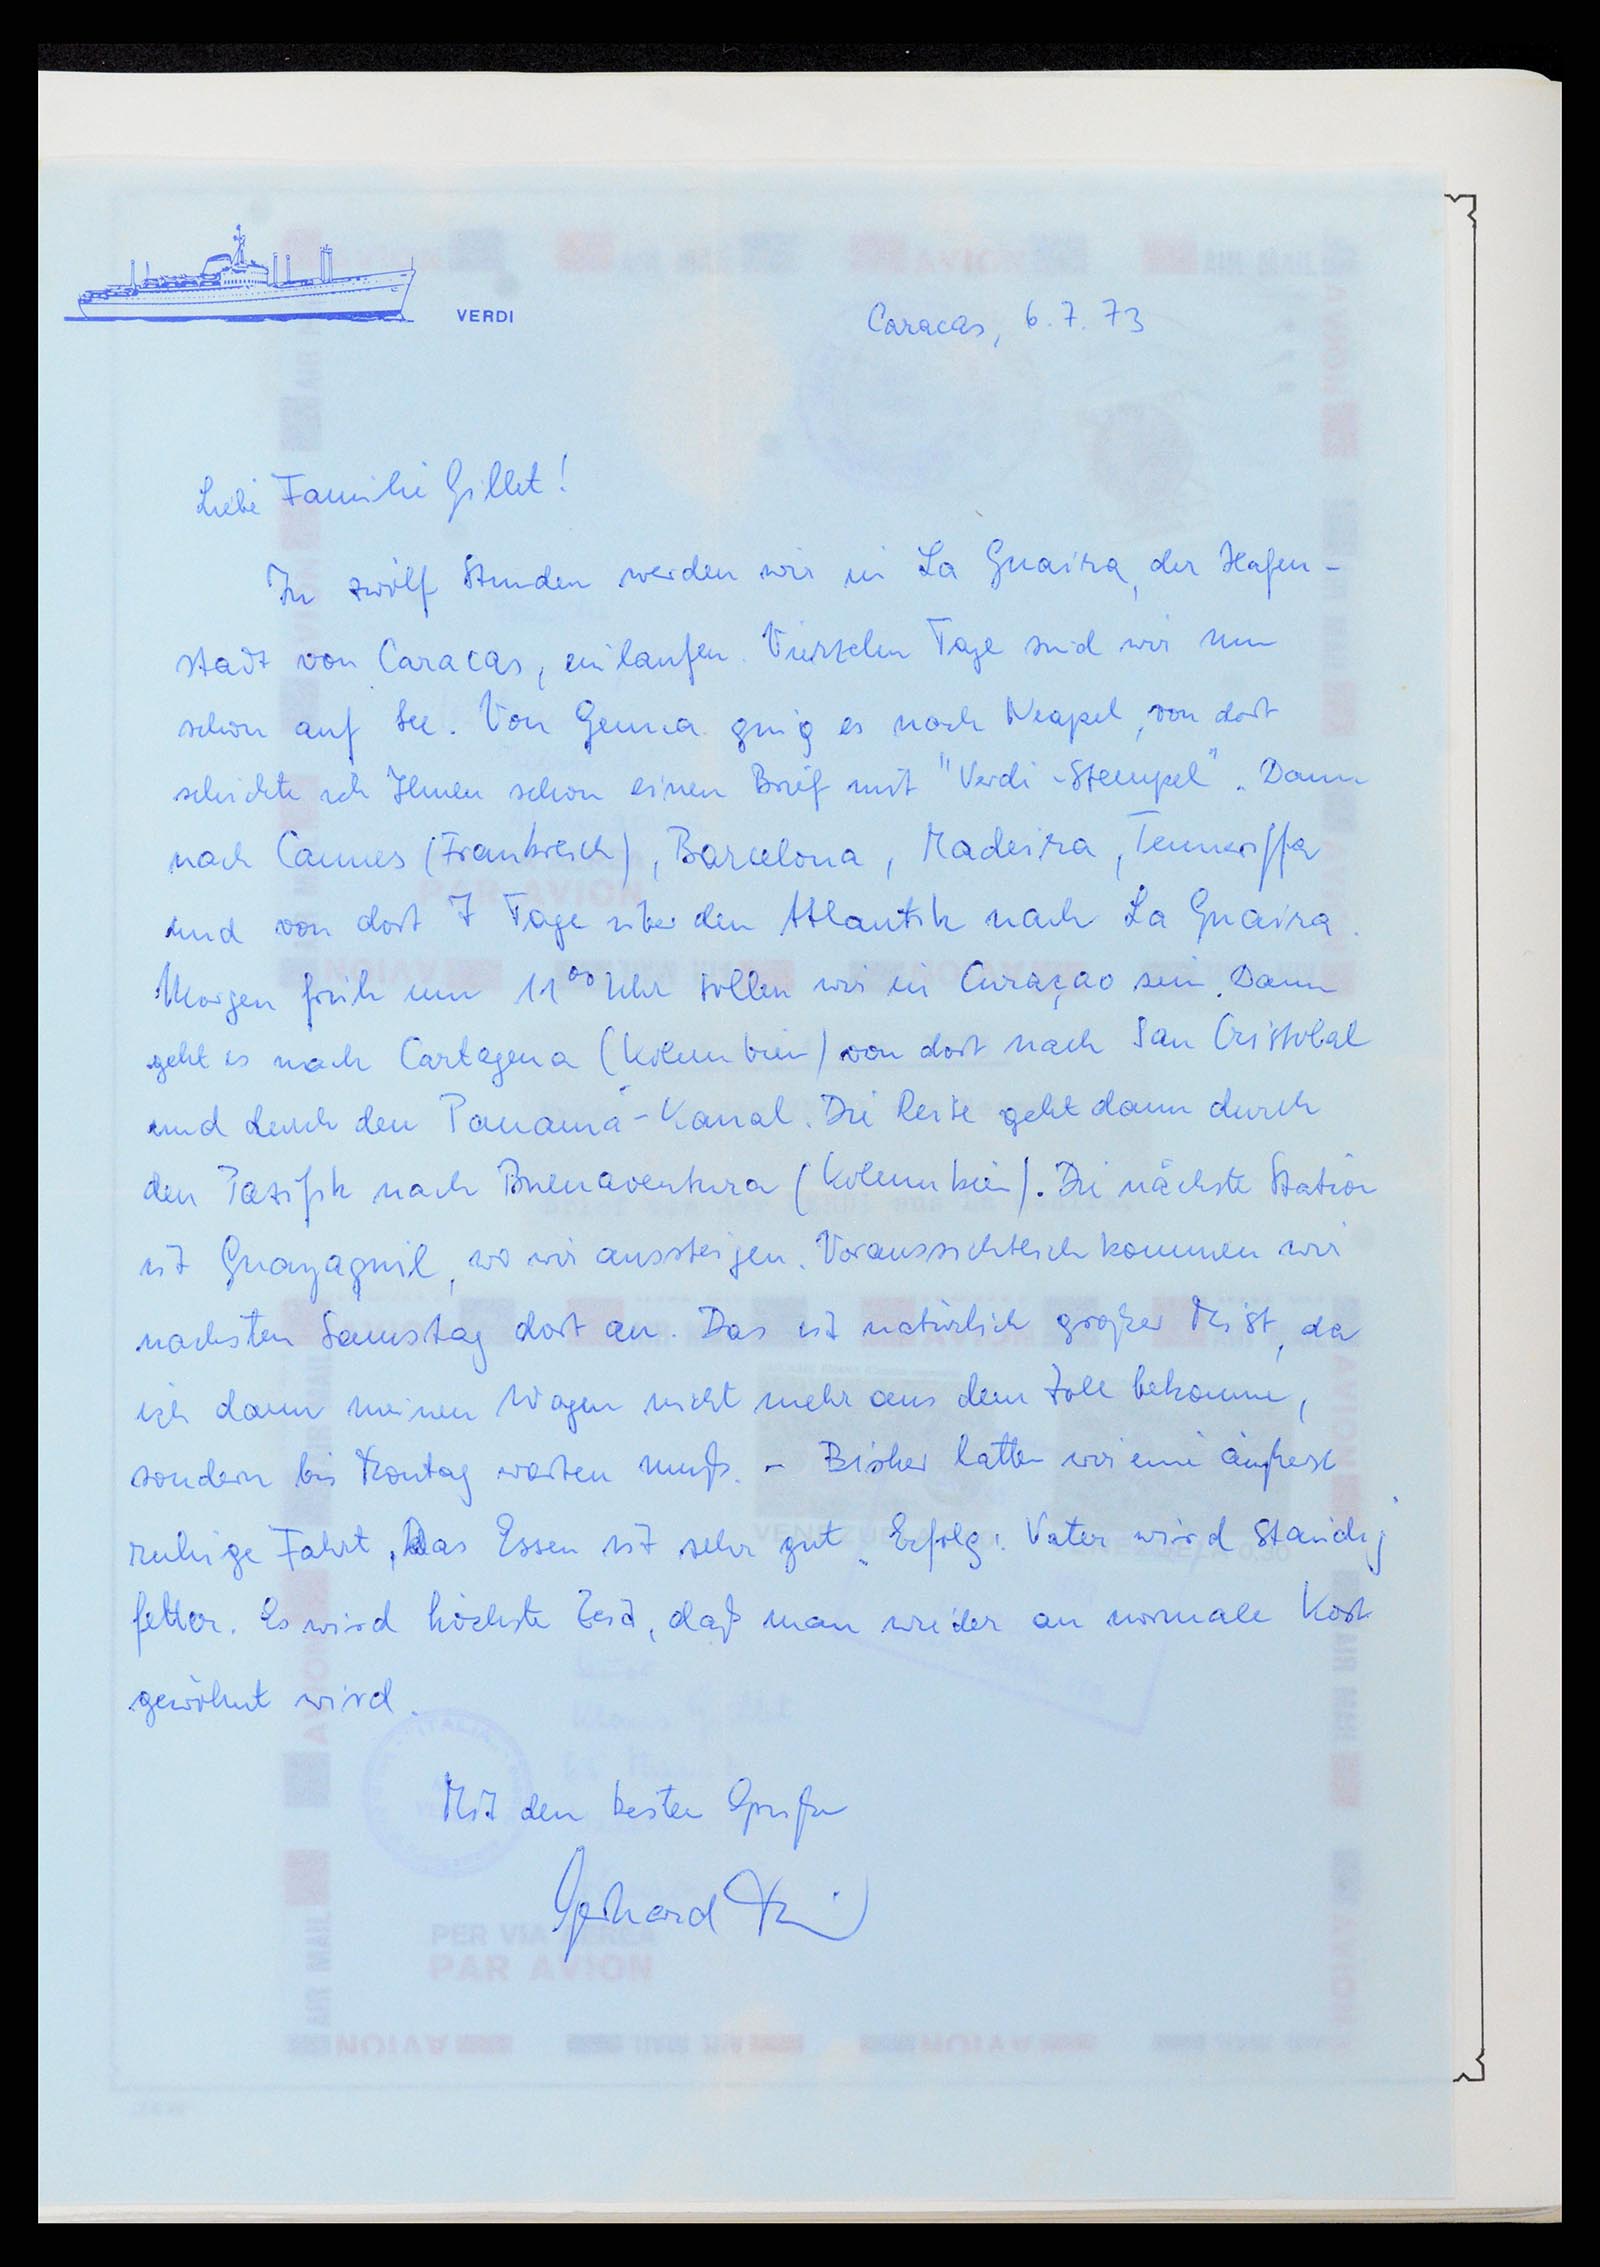 VERDI
Caracas, 6.7.73
Liebe Familie Gillet!
In zwölf Stunden werden wir in La Guaira, der Hafen-
stadt von Caracas, einlaufen. Vierzehn Tage sind wir nun
schon auf See. Von Genua ging es nach Neapel, von dort
schickte ich Ihnen schon einen Brief mit "Verdi-Stempel". Dann
nach Cannes (Frankreich), Barcelona, Madeira, Tenneriffa
und von dort 7 Tage über den Atlantik nach La Guaira.
Morgen früh um 11⁰⁰ Uhr sollen wir in Curaçao sein. Dann
geht es nach Cartagena (Kolumbien) von dort nach San Cristobal
und durch den Panamá-Kanal. Die Reise geht dann durch
den Pazifik nach Buenaventura (Kolumbien). Die nächste Station
ist Guayaquil, wo wir aussteigen. Voraussichtlich kommen wir
nachsten Samstag dort an. Das ist natürlich großer Mist, da
ich dann meinen Wagen nicht mehr aus dem Zoll bekomme,
sondern bis Montag warten muß. - Bisher hatten wir eine äußerst
ruhige Fahrt, Das Essen ist sehr gut. Erfolg: Vater wird ständig
fetter. Es wird höchste Zeit, daß man wieder an normale Kost
gewöhnt wird.
Mit den besten Grüßen
Gerhard
PER VIA AEREA
PAR AVION